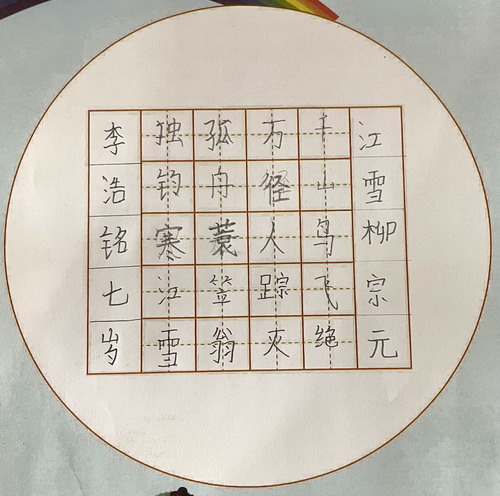 江雪柳宗元
千山鸟飞绝
万径人踪灭
孤舟蓑笠翁
独钓寒江雪
李浩铭七岁